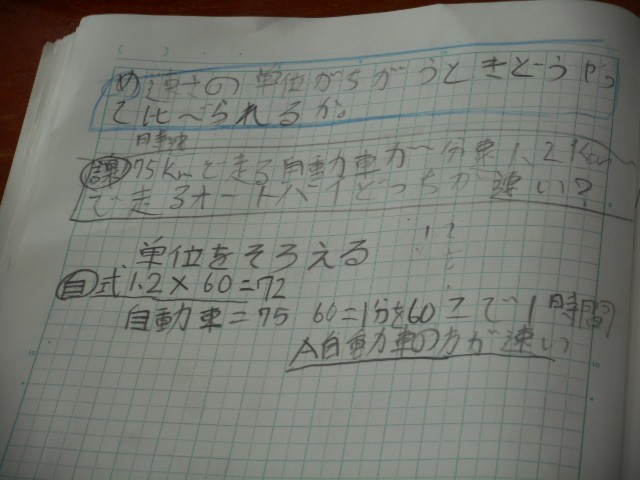 め 速さの単位がちがうときどうやっ
て比べられるか。
時速
課 75kmで走る自動車が分速1.2km
で走るオートバイどっちが速い?
単位をそろえる
自 式 1.2×60=72
自動車=75 60=1分を60こで1時間
A自動車の方が速い